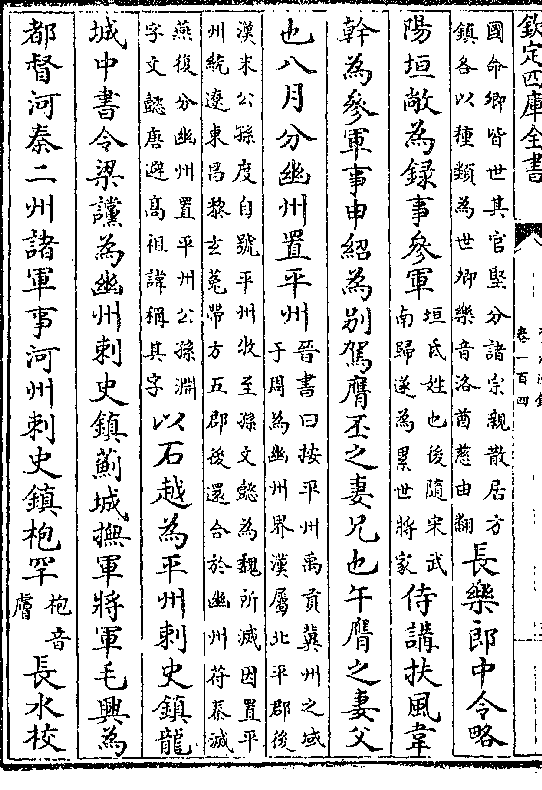 欽定四庫全書
卷一百四
國命卿皆世其官堅分諸宗親散居方
鎮各以種類為世卿樂音洛酋慈由翻
長樂郎中令略
陽垣敞為録事參軍
垣氏姓也後隨宋武
南歸遂為累世將家
侍講扶風韋
幹為參軍事申紹為别駕膺丕之妻兄也午膺之妻父
也八月分幽州置平州
晉書曰按平州禹貢冀州之域
于周為幽州界漢屬北平郡後
漢末公孫度自號平州牧至孫文懿為魏所滅因置平
州統遼東昌黎玄菟帶方五郡後還合於幽州苻秦滅
燕復分幽州置平州公孫淵
字文懿唐避高祖諱稱其字
以石越為平州刺史鎮龍
城中書令梁讜為幽州刺史鎮薊城撫軍將軍毛興為
都督河秦二州諸軍事河州刺史鎮枹罕
枹音
膚
長水校